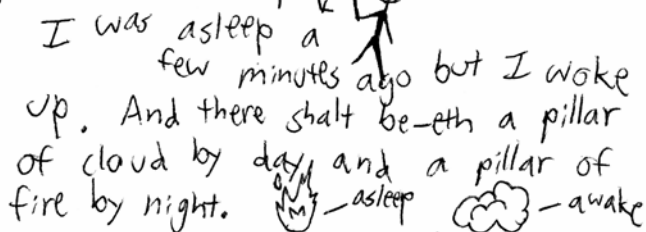 I was asleep a
few minutes ago but I woke
up. And there shalt be-eth a pillar
of cloud by day, and a pillar of
fire by night. – asleep – awake